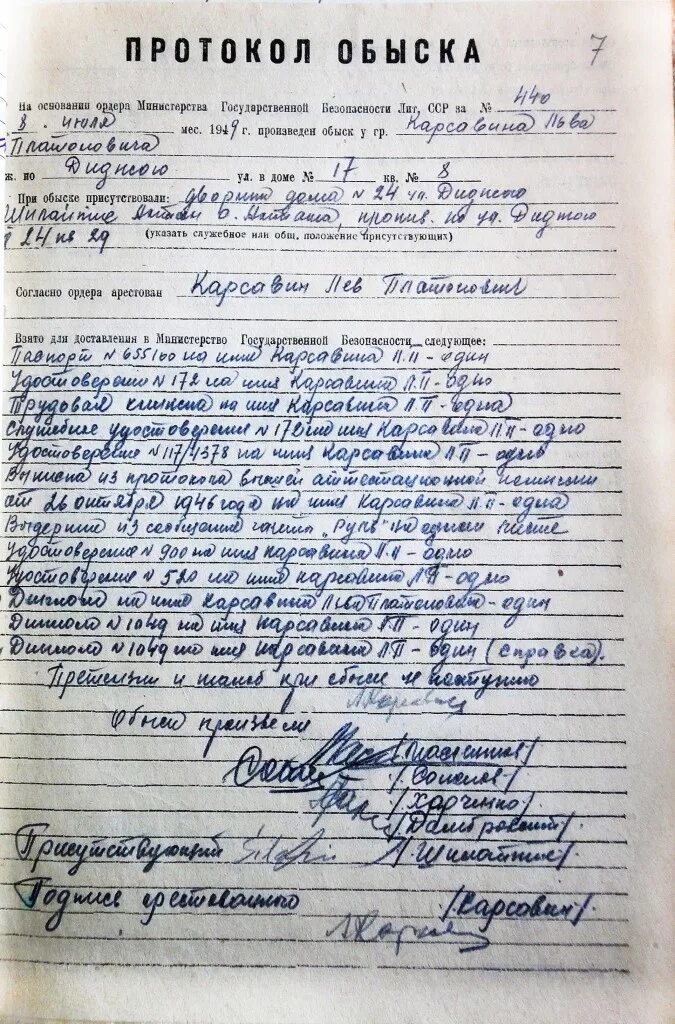 7
ПРОТОКОЛ ОБЫСКА
На основании ордера Министерства Государственной Безопасности Лит. ССР за № 440
8 . июля мес. 1949 г. произведен обыск у гр. Карсавина Льва
Платоновича
ж. по Диджою ул. в доме № 17 кв. № 8
При обыске присутствовали: дворник дома № 24 ул. Диджою
прожив. по ул. Диджою
24 кв 29 (указать служебное или общ. положение присутствующих)
Согласно ордера арестован Карсавин Лев Платонович
Взято для доставления в Министерство Государственной Безопасности следующее:
Паспорт № 655160 на имя Карсавина Л.П - один
Удостоверение № 172 на имя Карсавина Л.П - одно
Трудовая книжка на имя Карсавина Л.П - одна
Служебное удостоверение № 172 на имя Карсавина Л.П - одно
Удостоверение № 117/4378 на имя Карсавина Л.П - одно
Выписка из протокола высшей аттестационной комиссии
от 26 октября 1946 года на имя Карсавина Л.П - одна
из сообщения газеты "Руль" на одном листе
Удостоверение № 900 на имя Карсавина Л.П - одно
Удостоверение № 520 на имя Карсавина Л.П - одно
Диплом на имя Карсавина Льва Платоновича - один
Диплом № 1049 на имя Карсавина Л.П - один
Диплом № 1049 на имя Карсавина Л.П - один (справка).
Претензии и жалоб при обыске не поступило
Л Карсавин
Обыск произвели
/Соколов/
/Харченко/
/Домбровский/
Присутствующий
Подпись арестованного /Карсавин/.
Л Карсавин